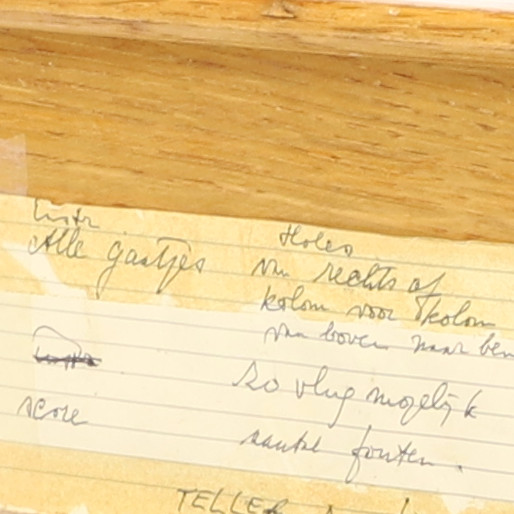 Instr
Holes
Alle gaatjes van rechts af
kolom voor kolom
van boven naar ben
zo vlug mogelijk
score aantal fouten.
TELLER